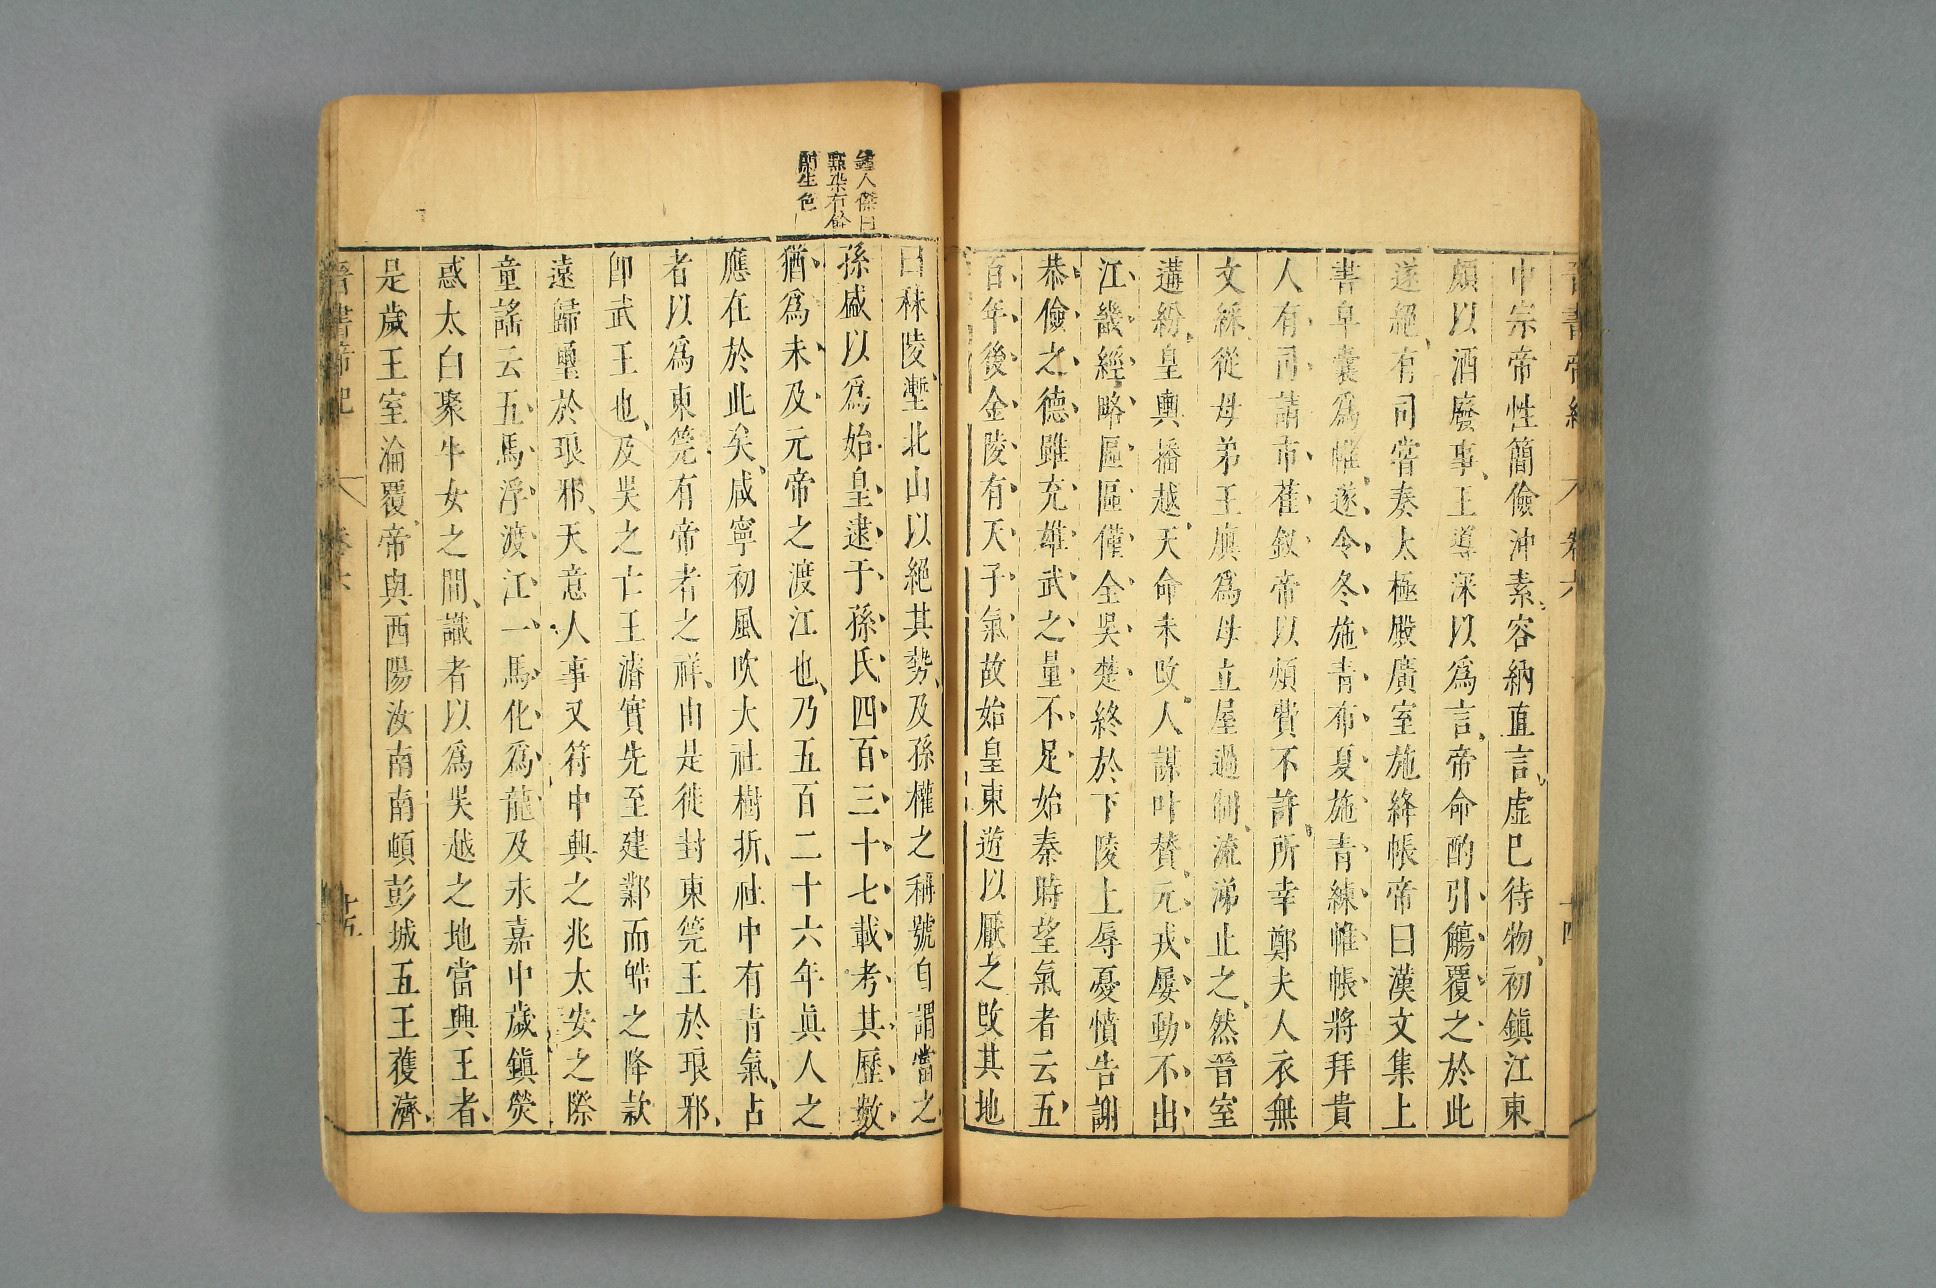 晉書帝紀 卷六 十四
中宗帝性簡儉沖素容納直言虛已待物初鎮江東
頗以酒廢事王導深以爲言帝命酌引觴覆之於此
遂絕有司嘗奏太極殿廣室施絳帳帝曰漢文集上
書皁囊爲帷遂令冬施青布夏施青練帷帳將拜貴
人有司請市雀釵帝以煩費不許所幸鄭夫人衣無
文綵從母弟王廙爲母立屋過制流涕止之然晉室
遘紛皇輿播越天命未改人謀叶贊元戎屢動不出
江畿經略區區僅全吳楚終於下陵上辱憂憤告謝
恭儉之德雖充雄武之量不足始秦時望氣者云五
百年後金陵有天子氣故始皇東遊以厭之改其地
曰秣陵塹北山以絕其勢及孫權之稱號自謂當之
孫盛以爲始皇逮于孫氏四百三十七載考其歷數
猶爲未及元帝之渡江也乃五百二十六年眞人之
應在於此矣咸寧初風吹大社樹折社中有青氣占
者以爲東筦有帝者之祥由是徙封東筦王於琅邪
卽武王也及吳之亡王濬實先至建鄴而皓之降款
遠歸璽於琅邪天意人事又符中興之兆太安之際
童謠云五馬浮渡江一馬化爲龍及永嘉中歲鎮熒
惑太白聚牛女之間識者以爲吳越之地當興王者
是歲王室淪覆帝與西陽汝南南頓彭城五王獲濟
晉書帝紀 卷六 十五
鍾人傑曰
點染有餘
生色